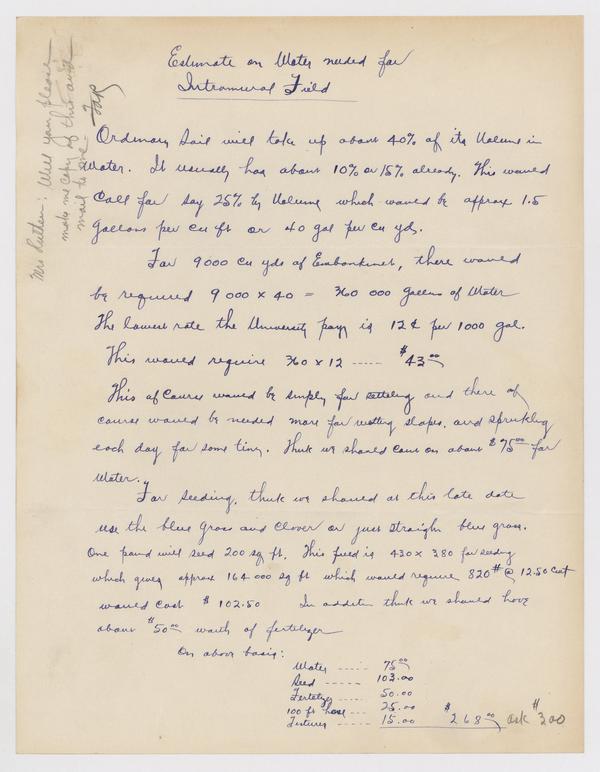 Mrs Luther: Will you please
make me copy of this and
mail to me
Estimate on Water needed for
Intramural Field
Ordinary Soil will take up about 40% of its Volume in
Water. It usually has about 10% or 15% already. This would
Call for say 25% by Volume which would be approx 1.5
Gallons per cu ft or 40 gal per cu yds.
For 9000 cu yds of Embankment, there would
be required 9000 x 40 = 360 000 gallons of Water
The lowest rate the University pays is 12¢ per 1000 gal.
This would require 360 x 12 ----- $43.00
This of course would be simply for settling and there of
course would be needed more for wetting slopes, and sprinkling
each day for some time. Think we should count on about $75.00 for
Water.
For Seeding, think we should at this late date
use the blue Grass and Clover or just straight blue grass.
One pound will seed 200 sq ft. This field is 430 x 380 for seeding
which gives approx 164 000 sq ft which would require 820# @ 12.50 Cwt
would cost $102.50 In addition think we should have
about $50.00 worth of fertilizer
On above basis:
Water ----- 75.00
Seed ------ 103.00
Fertilizer ----- 50.00
100 ft hose ---- 25.00
Fixtures ----- 15.00 $268.00 ask $300